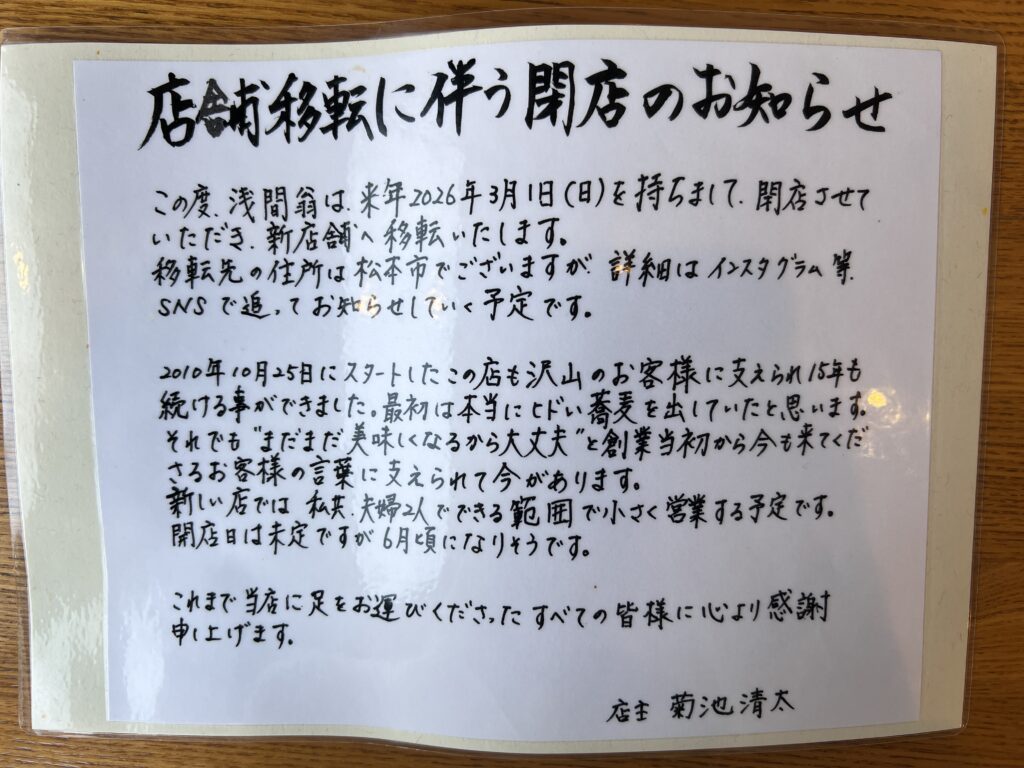 店舗移転に伴う閉店のお知らせ
この度、浅間翁は、来年2026年3月1日(日)を持ちまして、閉店させて
いただき、新店舗へ移転いたします。
移転先の住所は松本市でございますが、詳細はインスタグラム等、
SNSで追ってお知らせしていく予定です。
2010年10月25日にスタートしたこの店も沢山のお客様に支えられ15年も
続ける事ができました。最初は本当にヒドい蕎麦を出していたと思います。
それでも"まだまだ美味しくなるから大丈夫"と創業当初から今も来てくだ
さるお客様の言葉に支えられて今があります。
新しい店では私共、夫婦2人でできる範囲で小さく営業する予定です。
開店日は未定ですが6月頃になりそうです。
これまで当店に足をお運びくださったすべての皆様に心より感謝
申し上げます。
店主 菊池清太